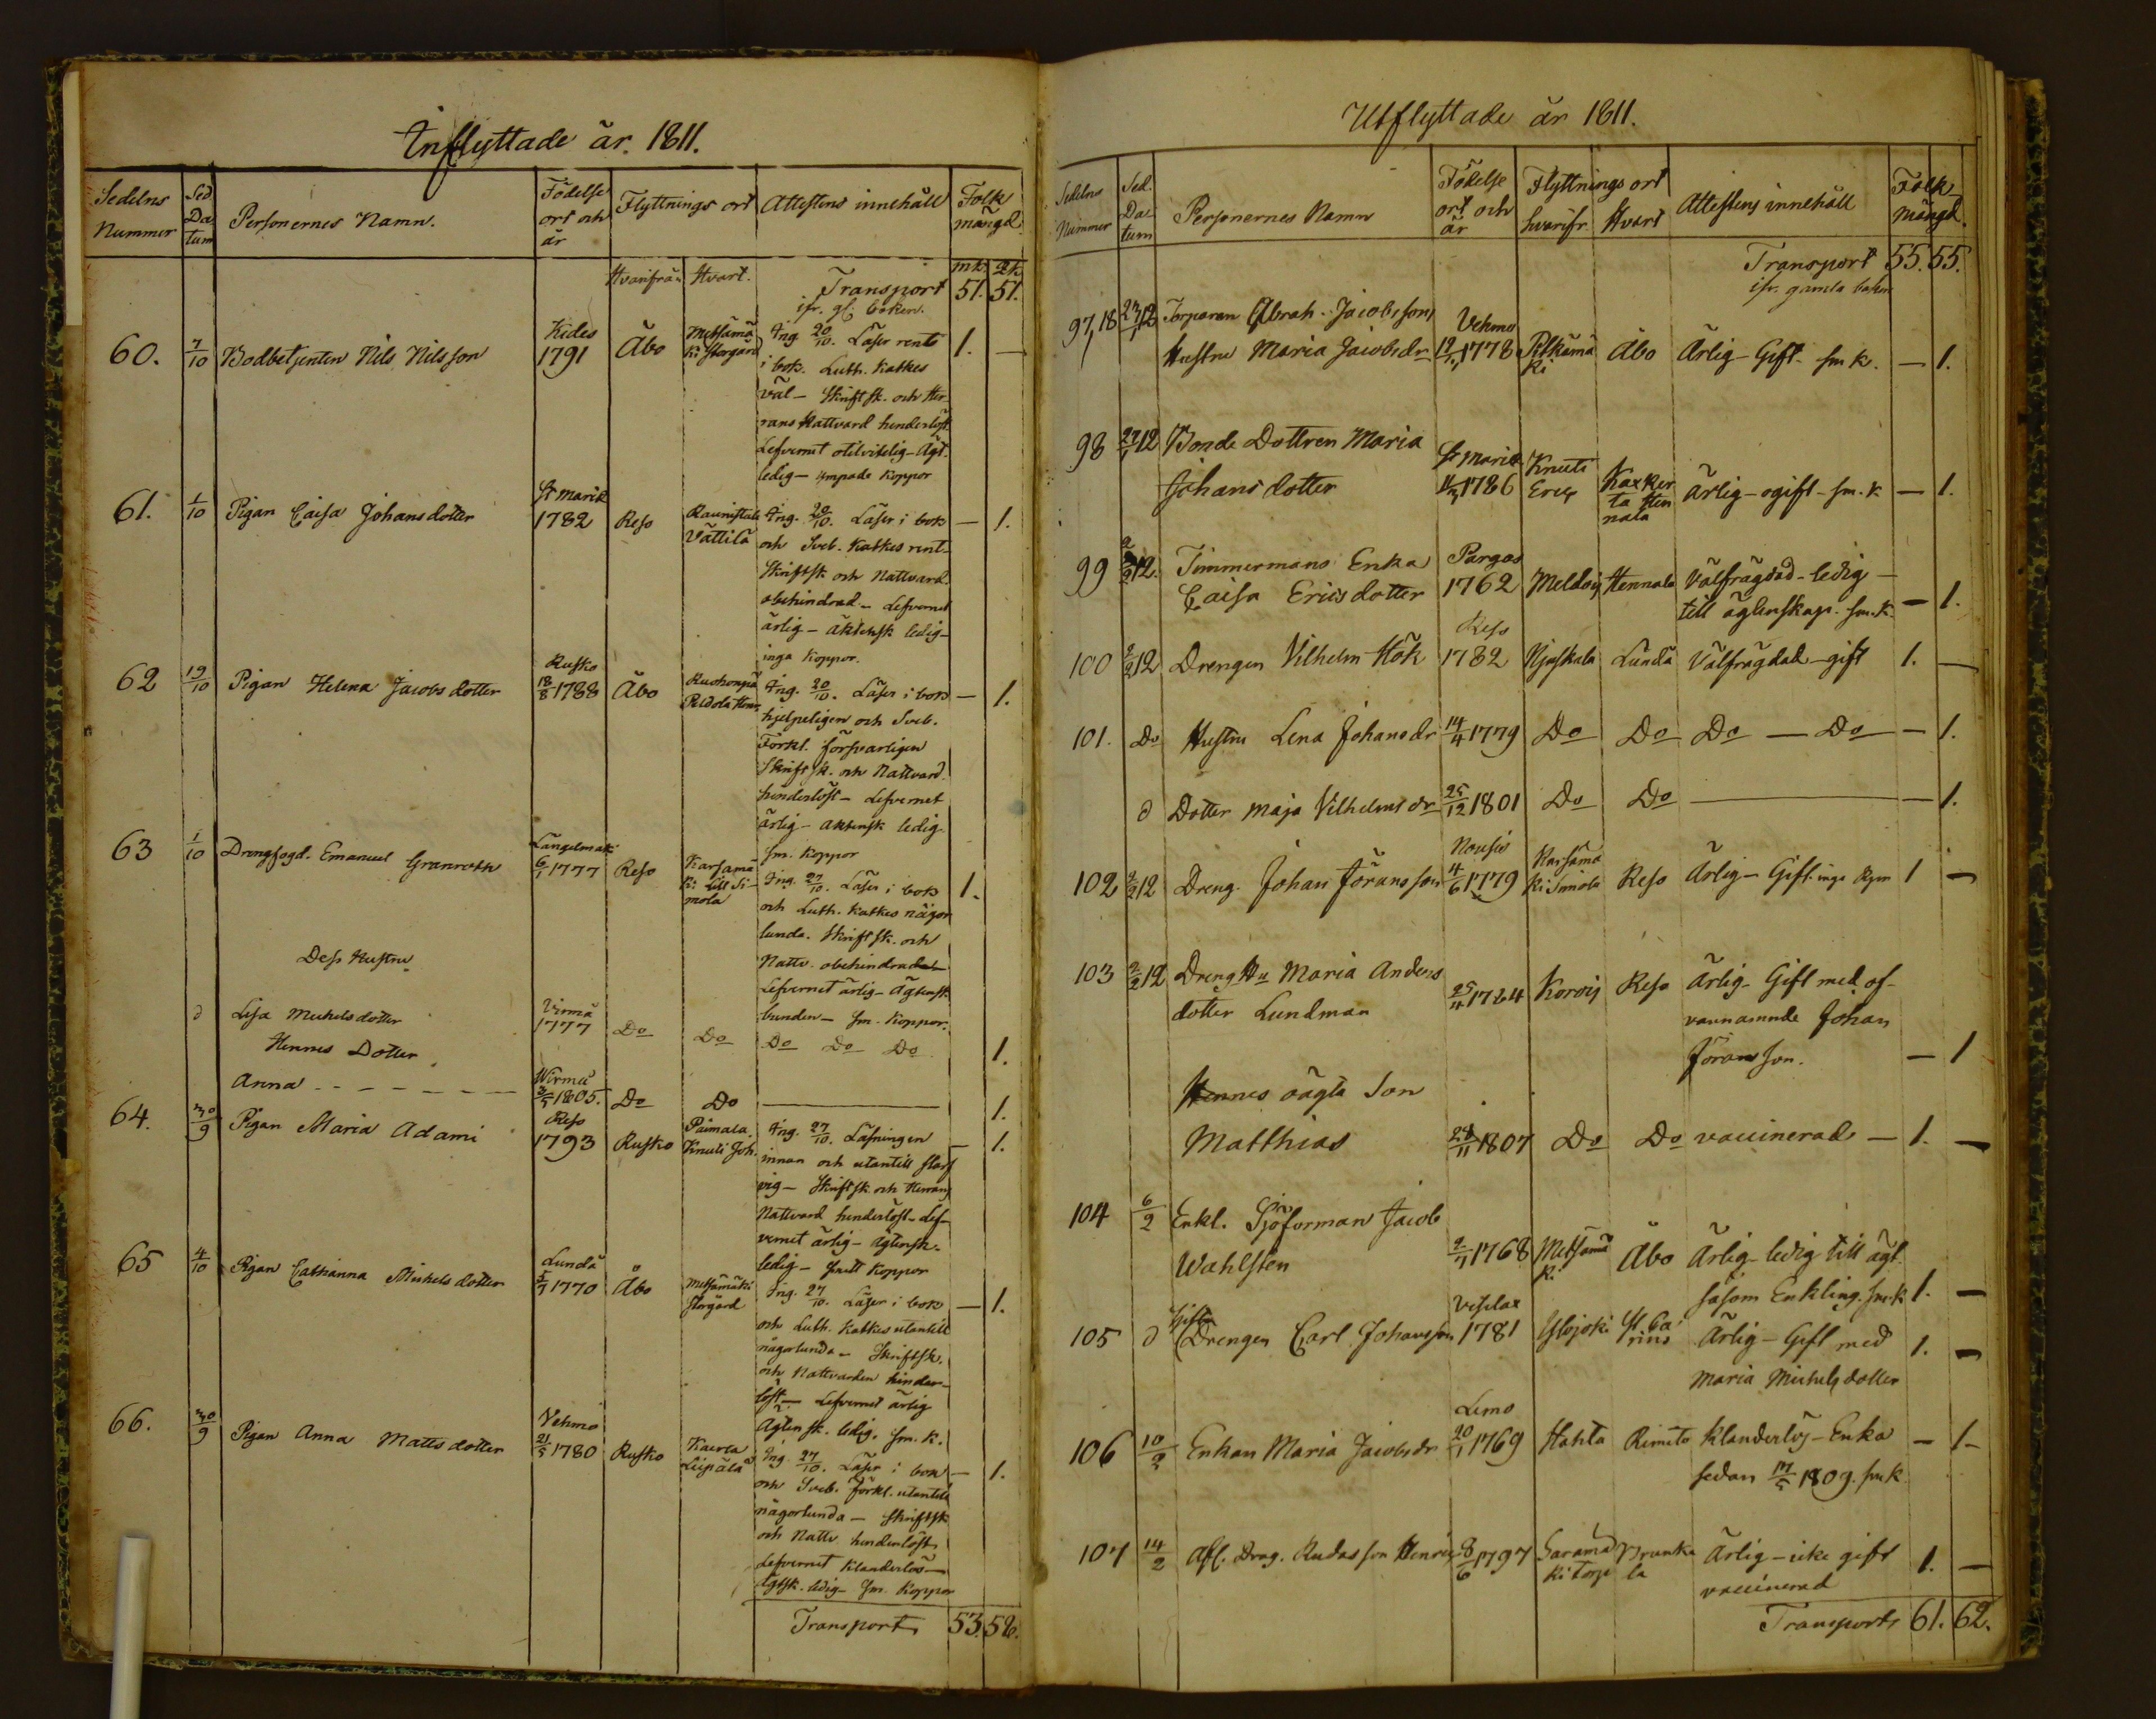 Inflyttade år. 1811.
Sedelns Nummer
Sed. Datum
Personernes Namn.
Födelse ort och år
Flyttnings ort
Attestens innehåll
Folk mängd
Hvarifrån
Hvart.
Transport
mk. qk.
51. 51.
ifr. gl. boken.
60. 7/10 Bodbetjenten Nils Nilsson
Kides
1791
Åbo
Metsämä
ki storgård
Ing. 20/10. Läser rent
i bok. Luth. Katkes
väl – Skriftsk. och Her-
rans Nattvard hinderlöst
Lefvernet otilvitelig – Ägt.
ledig – ympade koppor
1. —
61. 1/10 Pigan Caisa Johansdotter
St Marie
1782
Reso
Raunistula
Vättilä
Ing. 20/10. Läser i bok
och Sveb. Katkes rent –
Skriftsk och Nattvard
obehindrad – Lefvernet
ärlig – äktensk ledig –
inga koppor.
— 1.
62 19/10 Pigan Helena Jacobsdotter
Rusko
18/8 1788
Åbo
Ruohonpä
Peldola Hem.
Ing. 20/10. Läser i bok
hjelpeligen och Sveb.
Förkl. försvarligen
Skriftsk. och Nattvard
hinderlöst – Lefvernet
ärlig – äktensk ledig
sm. koppor
— 1.
63 1/10 Drengfogd. Emanuel Granroth
Längelmäki
6/1 1777
Reso
Karsamä
ki Lill Si-
mola
Ing. 27/10. Läser i bok
och Luth. Katkes någor
lunda. Skriftsk. och
Nattv. obehindrad
Lefvernet ärlig – Ägtensk
bunden – sm. koppor.
1.
Dess Hustru
d Lisa Michelsdotter
Virmå
1777
Do Do Do Do Do 1.
Hennes Dotter
Anna - - - - - -
Wirmå
3/5 1805. Do Do — 1.
64. 30/9 Pigan Maria Adami
Reso
1793
Rusko
Paimala
Knuti Joh.
Ing. 27/10. Läsningen
innan och utantill slarf
vig – Skriftsk. och Herrans
Nattvard hinderlöst – Lef-
vernet ärlig – Ägtensk.
ledig – smitt koppor
— 1.
65 4/10 Pigan Catharina Michelsdotter
Lundå
5/7 1770
Åbo
Metsämäki
storgård
Ing. 27/10. Läser i bok
och Luth. Katkes utantill
någorlunda – Skriftsk.
och Nattvarden hinder-
löst – Lefvernet ärlig
Ägtensk. ledig. sm. k.
— 1.
66. 30/9 Pigan Anna Mattsdotter
Vehmo
21/5 1780
Rusko
Kaerla
Liipälä
Ing. 27/10. Läser i bok
och Sveb. Förkl. utantill
någorlunda – Skriftsk
och Nattv hinderlöst
Lefvernet klanderlös –
Ägtsk. ledig – sm. koppor
— 1.
Transport 53. 58.
Utflyttade år 1811.
Sedelns Nummer
Sed. Datum
Personernes Namn
Födelse ort och år
Flyttnings ort
hvarifr.
Hvart
Attestens innehåll
Folk mängd.
Transport 55. 55.
ifr. gamla boken
97,18 27/1 12 Torparen Abrah. Jacobsson,
Hustru Maria Jacobsdr
Vehmo
12/1 1778
Pitkämä
ki
Åbo
Ärlig – Gift – sm k. — 1.
98 27/1 12 Bonde Dottren Maria
Johansdotter
St Marie
1786
Knuti
Eric
Kaxker
ta Hen
nala
Ärlig – ogift – sm. k — 1.
99 2/2 12. Timmermans Enka
Caisa Ericsdotter
Pargas
1762
Meldoi Hennala
Välfrägdad – ledig –
till ägtenskap. sm. k. — 1.
100 2/2 12 Drengen Vilhelm Hök
Reso
1782
Njuskala Lundå Välfrägdad – gift 1. —
101. Do Hustru Lena Johansdr 14/4 1779 Do Do Do — Do — 1.
d Dotter Maja Vilhelmsdr 25/12 1801 Do Do — 1.
102 2/2 12 Dreng. Johan Göransson
Nousis
4/6 1779
Karsämä
ki Simola
Reso Ärlig – Gift. inga kopp 1 —
103 2/2 12 Dreng Hu Maria Anders
dotter Lundman
25/11 1764 Korois Reso Ärlig – Gift med of-
vannämnde Johan
Göransson. — 1
Hennes oägta Son
Matthias 24/11 1807 Do Do vaccinerad — 1. —
104 6/2 Enkl. Sjöforman Jacob
Wahlsten
2/1 1768 Metsämä
ki
Åbo Ärlig ledig till ägt.
såsom Enkling. sm k 1. —
105 d Gifta
Drengen Carl Johansson
Vesilax
1781
Yliojoki St Ca
rins
Ärlig – Gift med
Maria Michelsdotter 1. —
106 10/2 Enkan Maria Jacobsdr
Lemo
20/1 1769 Hahta Rimito Klanderlös – Enka
sedan 17/5 1809. sm k. — 1 –
107 14/2 Afl. Drag. Rudas son Henric 8/6 1797
Saramä
ki torp
Brunka
la
Ärlig – icke gift
vaccinerad 1. —
Transport 61. 62.